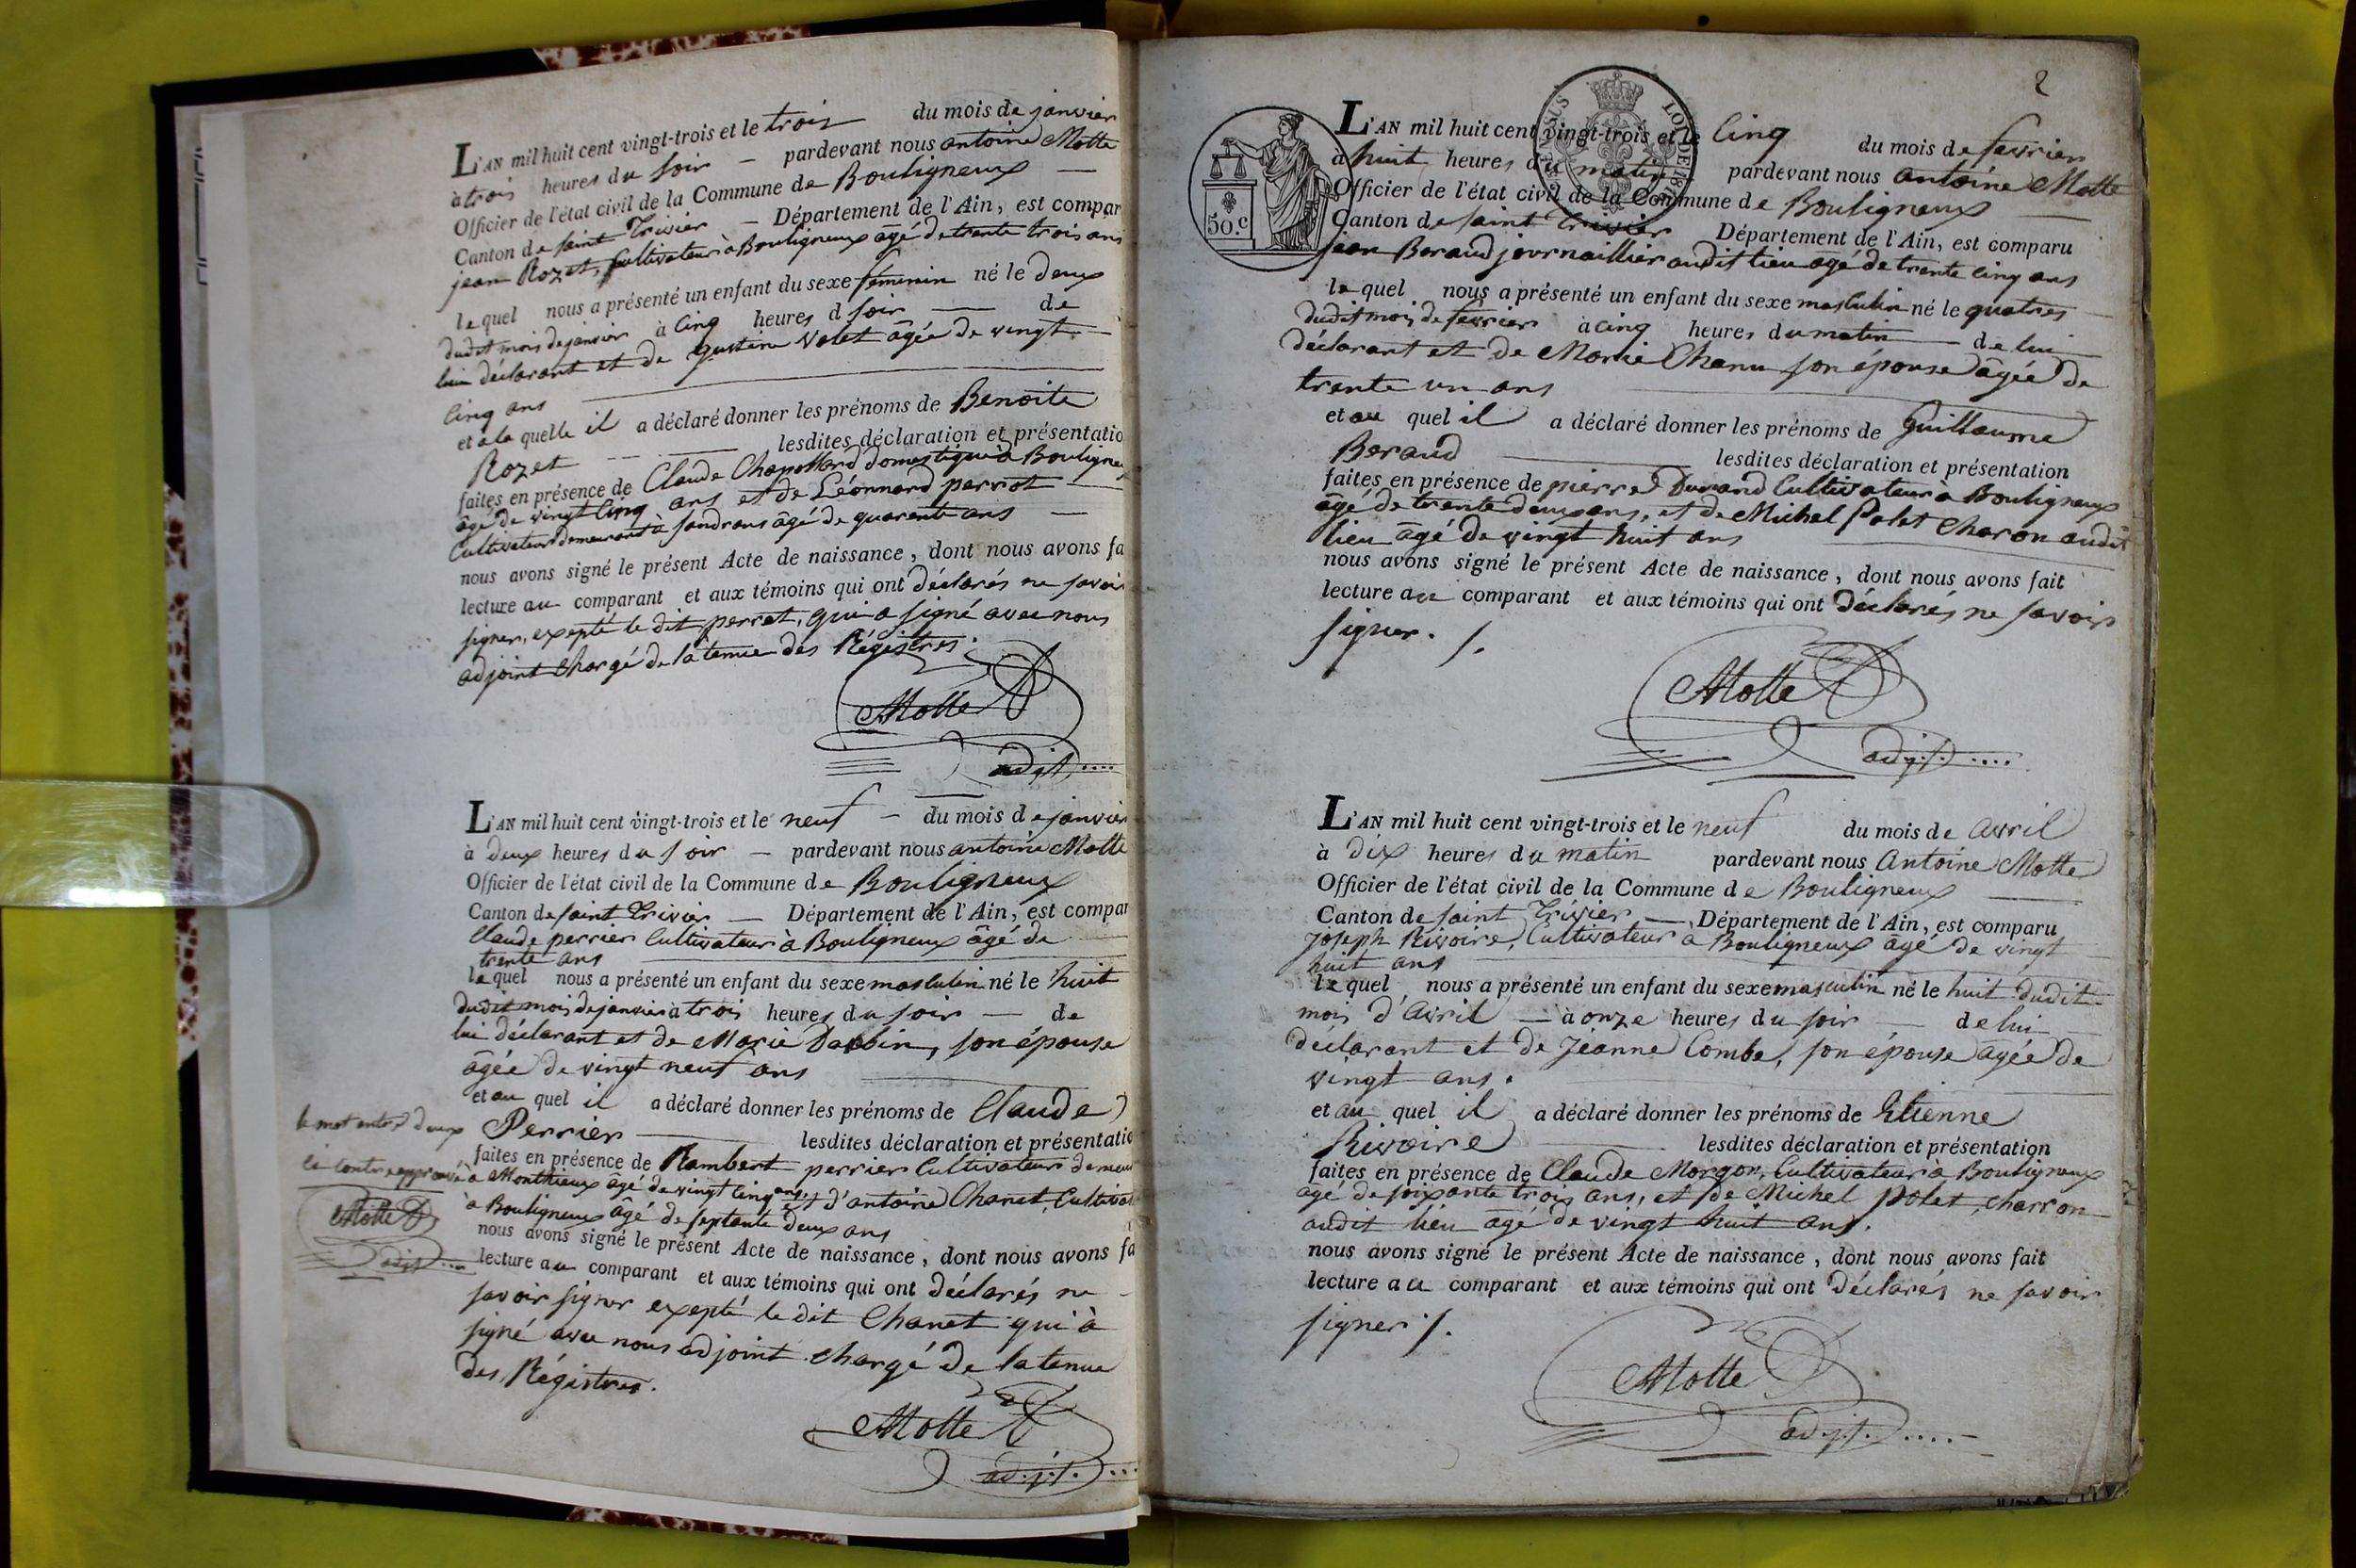 L'AN mil huit cent vingt-trois et le trois du mois de janvier
à trois heures du soir — pardevant nous antoine Motte
Officier de l'état civil de la Commune de Bouligneux —
Canton de saint Trivier — Département de l'Ain, est compar
jean Rozet, Cultivateur à Bouligneux âgé de trente trois ans
lequel nous a présenté un enfant du sexe féminin né le deux
dudit mois de janvier à cinq heures d soir — de
lui déclarant et de gustine Volet âgée de vingt
cinq ans
et a la quelle il a déclaré donner les prénoms de Benoite
Rozet — lesdites déclaration et présentatio
faites en présence de Claude Chapottard domestique à Bouligneu
âgé de vingt cinq ans et de Léonnard perriot
Cultivateur demeurant à sandrans âgé de quarente ans —
nous avons signé le présent Acte de naissance, dont nous avons fa
lecture au comparant et aux témoins qui ont déclarés ne savoir
signer, expté le dit perret, qui a signé avec nous
adjoint chargé de la tenue des Régistres.
Motte
adjt....
L'AN mil huit cent vingt-trois et le neuf — du mois de janvier
à deux heures du soir — pardevant nous antoine Motte
Officier de l'état civil de la Commune de Bouligneux
Canton de saint Trivier — Département de l'Ain, est compar
Claude perrier Cultivateur à Bouligneux âgé de
trente ans
lequel nous a présenté un enfant du sexe masculin né le huit
dudit mois de janvier à trois heures du soir — de
lui déclarant et de Marie Dabbin, son épouse
âgée de vingt neuf ans
et au quel il a déclaré donner les prénoms de Claude
Perrier — lesdites déclaration et présentatio
faites en présence de Rambert perrier Cultivateur demeur
à Monthieux âgé de vingt cinq ans, et d'antoine Chanet, Cultivat
à Bouligneux âgé de septante deux ans
nous avons signé le présent Acte de naissance, dont nous avons fa
lecture au comparant et aux témoins qui ont déclarés ne
savoir signer expté le dit Chanet qui à
signé avec nous adjoint chargé de la tenue
des Régistres.
Motte
adjt....
le mot entre deux
ci contre approuvé
Motte
adjt...
2
50.c
L'AN mil huit cent vingt-trois et le cinq du mois de fevrier
à huit heures du matin pardevant nous Antoine Motte
Officier de l'état civil de la Commune de Bouligneux —
Canton de saint Trivier Département de l'Ain, est comparu
jean Beraud journaillier audit lieu âgé de trente cinq ans
lequel nous a présenté un enfant du sexe masculin né le quatres
dudit mois de fevrier à cinq heures du matin — de lui
déclarant et de Marie Chanu son épouse âgée de
trente un ans
et au quel il a déclaré donner les prénoms de Guillaume
Beraud — lesdites déclaration et présentation
faites en présence de pierre Durand Cultivateur à Bouligneux
âgé de trente deux ans, et de Michel Polet Charon audit
lieu âgé de vingt huit ans
nous avons signé le présent Acte de naissance, dont nous avons fait
lecture au comparant et aux témoins qui ont déclarés ne savoir
signer. /.
Motte
adjt.....
L'AN mil huit cent vingt-trois et le neuf du mois de Avril
à dix heures du matin pardevant nous Antoine Motte
Officier de l'état civil de la Commune de Bouligneux —
Canton de saint Trivier — Département de l'Ain, est comparu
Joseph Rivoire, Cultivateur à Bouligneux âgé de vingt
huit ans
lequel nous a présenté un enfant du sexe masculin né le huit dudit
mois d'Avril — à onze heures du soir — de lui
déclarant et de Jéanne Combe, son épouse agée de
vingt ans.
et au quel il a déclaré donner les prénoms de Etienne
Rivoire — lesdites déclaration et présentation
faites en présence de Claude Morgon, Cultivateur à Bouligneux
agé de soixante trois ans, et de Michel polet, charron
audit lieu âgé de vingt huit ans.
nous avons signé le présent Acte de naissance, dont nous avons fait
lecture au comparant et aux témoins qui ont déclarés ne savoir
signer /.
Motte
adjt.....